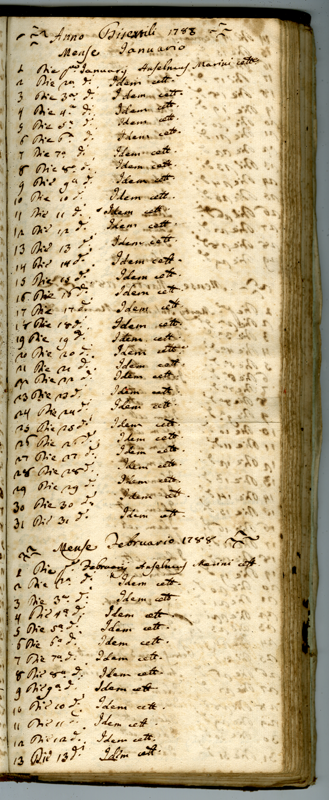 Anno Bisextili 1788
Mense Januario
1 Die pa January Anselmus Marini cett.
2 Die 2a d. Idem cett.
3 Die 3a d. Idem cett.
4 Die 4a d. Idem cett.
5 Die 5a d. Idem cett.
6 Die 6a d. Idem cett.
7 Die 7a d. Idem cett.
8 Die 8a d. Idem cett.
9 Die 9a d. Idem cett.
10 Die 10 d. Idem cett.
11 Die 11 d. Idem cett.
12 Die 12 d. Idem cett.
13 Die 13 d. Idem cett.
14 Die 14 d. Idem cett.
15 Die 15 d. Idem cett.
16 Die 16 d. Idem cett.
17 Die 17 d. Idem cett.
18 Die 18 d. Idem cett.
19 Die 19 d. Idem cett.
20 Die 20 d. Idem cett.
21 Die 21 d. Idem cett.
22 Die 22 d. Idem cett.
23 Die 23 d. Idem cett.
24 Die 24 d. Idem cett.
25 Die 25 d. Idem cett.
26 Die 26 d. Idem cett.
27 Die 27 d. Idem cett.
28 Die 28 d. Idem cett.
29 Die 29 d. Idem cett.
30 Die 30 d. Idem cett.
31 Die 31 d. Idem cett.
Mense Februario 1788
1 Die pa Februarij Anselmus Marini cett.
2 Die 2a d. Idem cett.
3 Die 3a d. Idem cett.
4 Die 4a d. Idem cett.
5 Die 5a d. Idem cett.
6 Die 6a d. Idem cett.
7 Die 7a d. Idem cett.
8 Die 8a d. Idem cett.
9 Die 9a d. Idem cett.
10 Die 10 d. Idem cett.
11 Die 11 d. Idem cett.
12 Die 12 d. Idem cett.
13 Die 13 d. Idem cett.